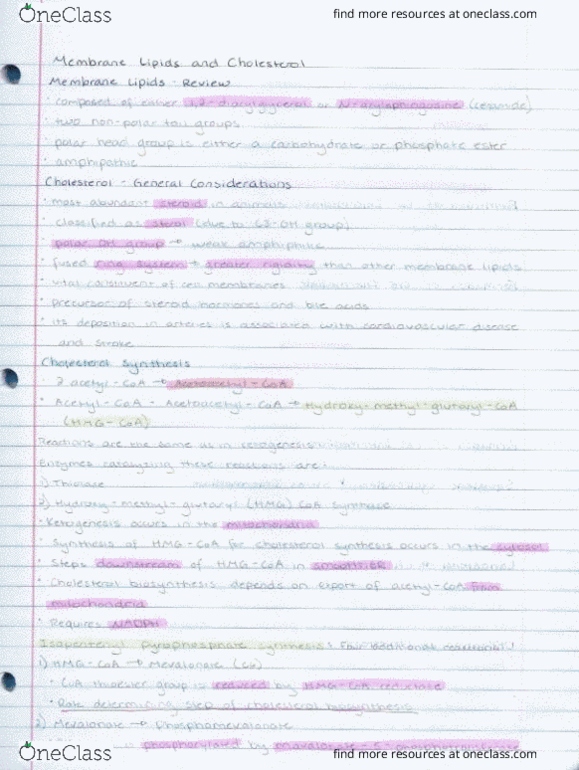 OneClass
find more resources at oneclass.com
Membrane Lipids and Cholesterol
Membrane Lipids - Review
· composed of either 1,2-diacylglycerol or N-acylsphingosine (ceramide)
· two non-polar tail groups
· polar head group is either a carbohydrate or phosphate ester
· amphipathic
Cholesterol - General Considerations
· most abundant steroid in animals
· classified as sterol (due to C3-OH group)
· polar OH group → weak amphiphilic
· fused ring system → greater rigidity than other membrane lipids
· vital constituent of cell membranes
· precursor of steroid hormones and bile acids
· its deposition in arteries is associated with cardiovascular disease
and stroke
Cholesterol Synthesis
· 2 acetyl-CoA → Acetoacetyl-CoA
· Acetyl-CoA - Acetoacetyl-CoA → Hydroxy-methyl-glutaryl-CoA
(HMG-CoA)
Reactions are the same as in ketogenesis
Enzymes catalysing these reactions are:
1) Thiolase
2) Hydroxy-methyl-glutaryl (HMG) CoA synthase
· Ketogenesis occurs in the mitochondria
· Synthesis of HMG-CoA for cholesterol synthesis occurs in the cytosol
· Steps downstream of HMG-CoA in smooth ER
· Cholesterol biosynthesis depends on export of acetyl-CoA from
mitochondria
· Requires NADPH
Isopentenyl pyrophosphate synthesis: Four additional reactions!
1) HMG-CoA → Mevalonate (C6)
· CoA thioester group is reduced by HMG-CoA reductase
· Rate determining step of cholesterol biosynthesis
2) Mevalonate → Phosphomevalonate
is phosphorylated by mevalonate-5-phosphotransferase
OneClass
find more resources at oneclass.com